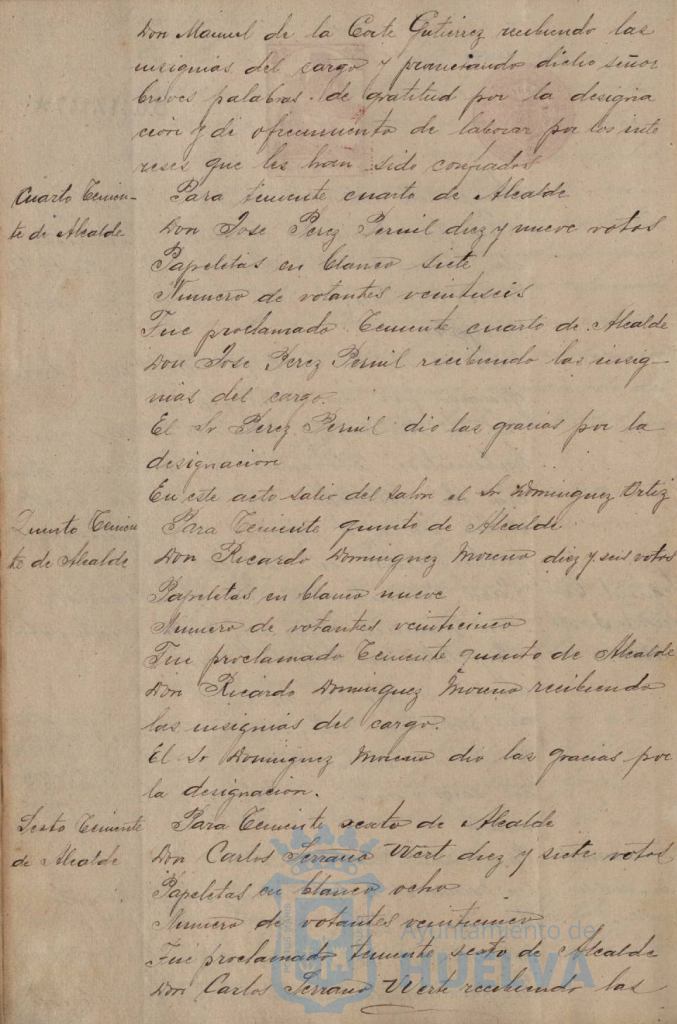 Don Manuel de la Corte Gutierrez recibiendo las
insignias del cargo y pronunciando dicho señor
breves palabras de gratitud por la designa
cion y de ofrecimiento de laborar por los inte
reses que les han sido confiados
Cuarto Tenien-
te de Alcalde
Para teniente cuarto de Alcalde
Don Jose Perez Pernil diez y nueve votos
Papeletas en blanco siete
Numero de votantes veintiseis
Fue proclamado Teniente cuarto de Alcalde
Don Jose Perez Pernil recibiendo las insig-
nias del cargo.
El Sr Perez Pernil dio las gracias por la
designacion
En este acto salio del salon el Sr Dominguez Ortiz
Quinto Tenien
te de Alcalde
Para Teniente quinto de Alcalde
Don Ricardo Dominguez Moreno diez y seis votos
Papeletas en blanco nueve
Numero de votantes veinticinco
Fue proclamado Teniente quinto de Alcalde
Don Ricardo Dominguez Moreno recibiendo
las insignias del cargo.
El Sr Dominguez Moreno dio las gracias por
la designacion.
Sexto Teniente
de Alcalde
Para Teniente sexto de Alcalde
Don Carlos Serrano Wert diez y siete votos
Papeletas en blanco ocho
Numero de votantes veinticinco
Fue proclamado teniente sexto de Alcalde
Don Carlos Serrano Wert recibiendo las
Ayuntamiento de
HUELVA